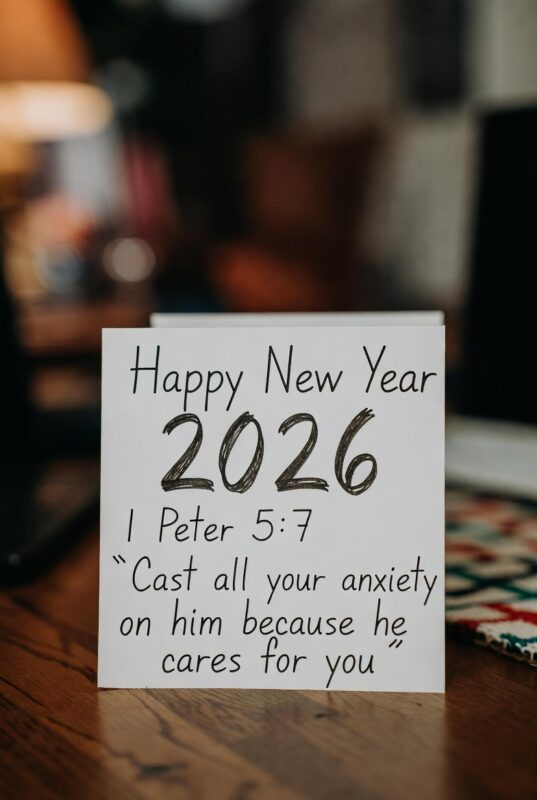 Happy New Year
2026
1 Peter 5:7
"Cast all your anxiety
on him because he
cares for you"